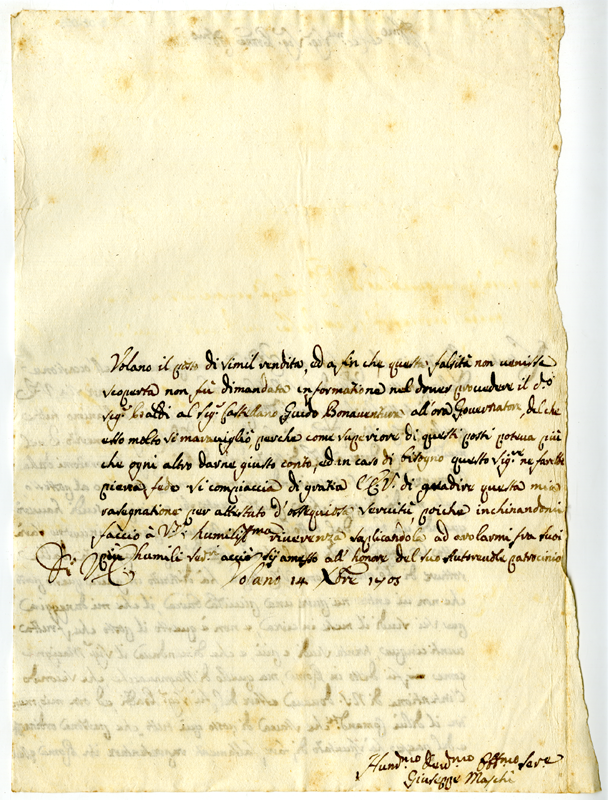 Volano il posto di simil vendita, ed a fin che questa falsità non venisse
scoperta non fù dimandata informazione nel dover procedere il do
Sigr Baldi al Sigr Castellano Guido Bonaventura all'ora Governatore, del che
esso molto si maravigliò perche come superiore di questi posti poteva più
che ogni altro darne giusto conto, ed in caso di bisogno questo Sigre ne farebbe
piena fede si compiaccia di gratia di gradire questa mia
rasegnatione per attestato d'ossequiosa servitù, poiche inchinandomi
faccio à humilissma riverenza suplicandola ad arolarmi fra suoi
più humili servri acciò sij amesso all'honore del suo Autorevole patrocinio
Volano 14 Xbre 1703
Hummo Devmo Obbmo Serre
Giuseppe Maschi